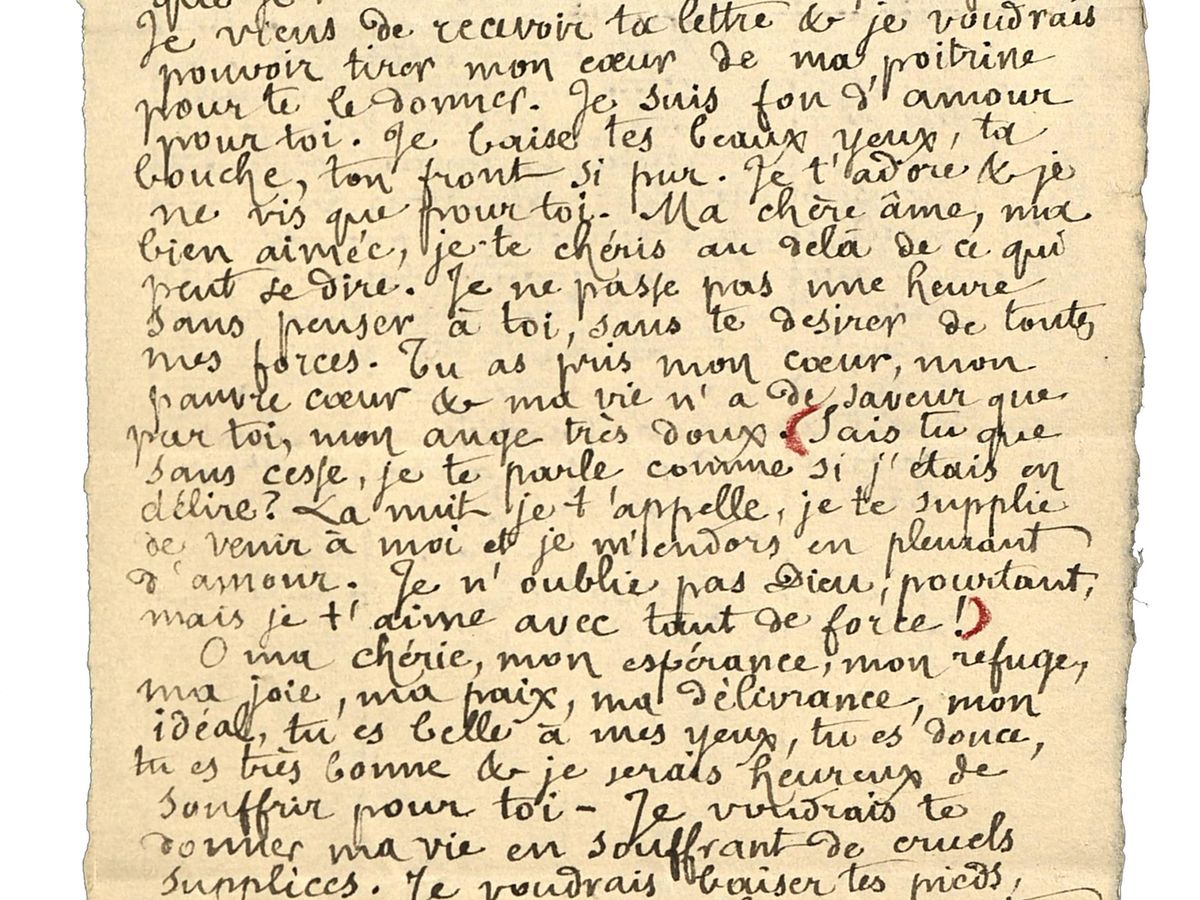 que je
Je viens de recevoir ta lettre & je voudrais
pouvoir tirer mon cœur de ma poitrine
pour te le donner. Je suis fou d'amour
pour toi. Je baise tes beaux yeux, ta
bouche, ton front si pur. Je t'adore & je
ne vis que pour toi. Ma chère âme, ma
bien aimée, je te chéris au delà de ce qui
peut se dire. Je ne passe pas une heure
sans penser à toi, sans te desirer de toutes
mes forces. Tu as pris mon cœur, mon
pauvre cœur & ma vie n'a de saveur que
par toi, mon ange très doux. (Sais tu que
sans cesse, je te parle comme si j'étais en
délire? La nuit je t'appelle, je te supplie
de venir à moi et je m'endors en pleurant
d'amour. Je n'oublie pas Dieu, pourtant,
mais je t'aime avec tant de force!)
O ma chérie, mon espérance, mon refuge,
ma joie, ma paix, ma délivrance, mon
idéal, tu es belle à mes yeux, tu es douce,
tu es très bonne & je serais heureux de
souffrir pour toi - Je voudrais te
donner ma vie en souffrant de cruels
supplices. Je voudrais baiser tes pieds,